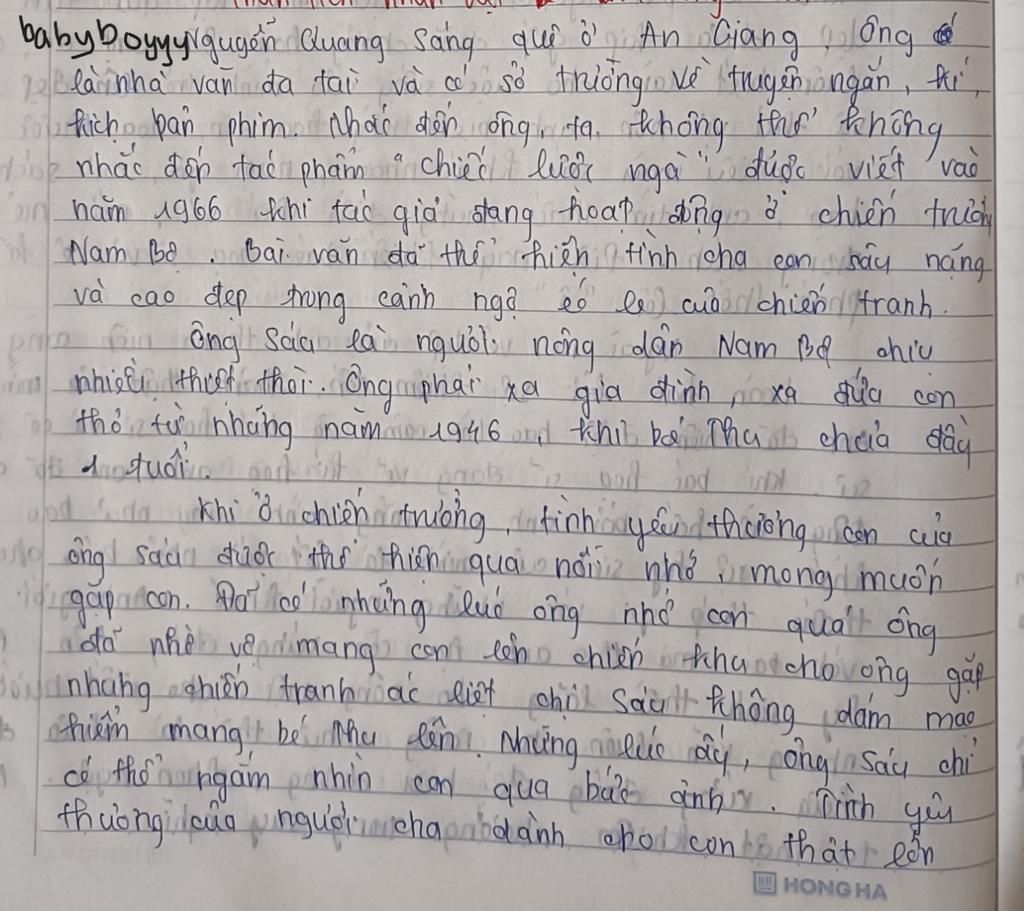 babyboyyy Nguyễn Quang Sáng quê ở An Giang, Ông
là nhà văn đa tài và có sở trường về truyện ngắn, kí,
kịch bản phim. Nhắc đến ông, ta không thể không
nhắc đến tác phẩm "chiếc lược ngà" được viết vào
năm 1966 khi tác giả đang hoạt động ở chiến trường
Nam Bộ. Bài văn đã thể hiện tình cha con sâu nặng
và cao đẹp trong cảnh ngộ éo le của chiến tranh.
Ông Sáu là người nông dân Nam Bộ chịu
nhiều thiệt thòi. Ông phải xa gia đình, xa đứa con
thơ từ những năm 1946, khi bé Thu chưa đầy
1 tuổi.
Khi ở chiến trường, tình yêu thương con của
ông Sáu được thể hiện qua nỗi nhớ, mong muốn
gặp con. Đã có những lúc ông nhớ con quá ông
đã nhờ vợ mang con lên chiến khu cho ông gặp
nhưng chiến tranh ác liệt chị Sáu không dám mạo
hiểm mang bé Thu lên. Những lúc ấy, ông Sáu chỉ
có thể ngắm nhìn con qua bức ảnh. Tình yêu
thương của người cha dành cho con thật lớn
HONG HA